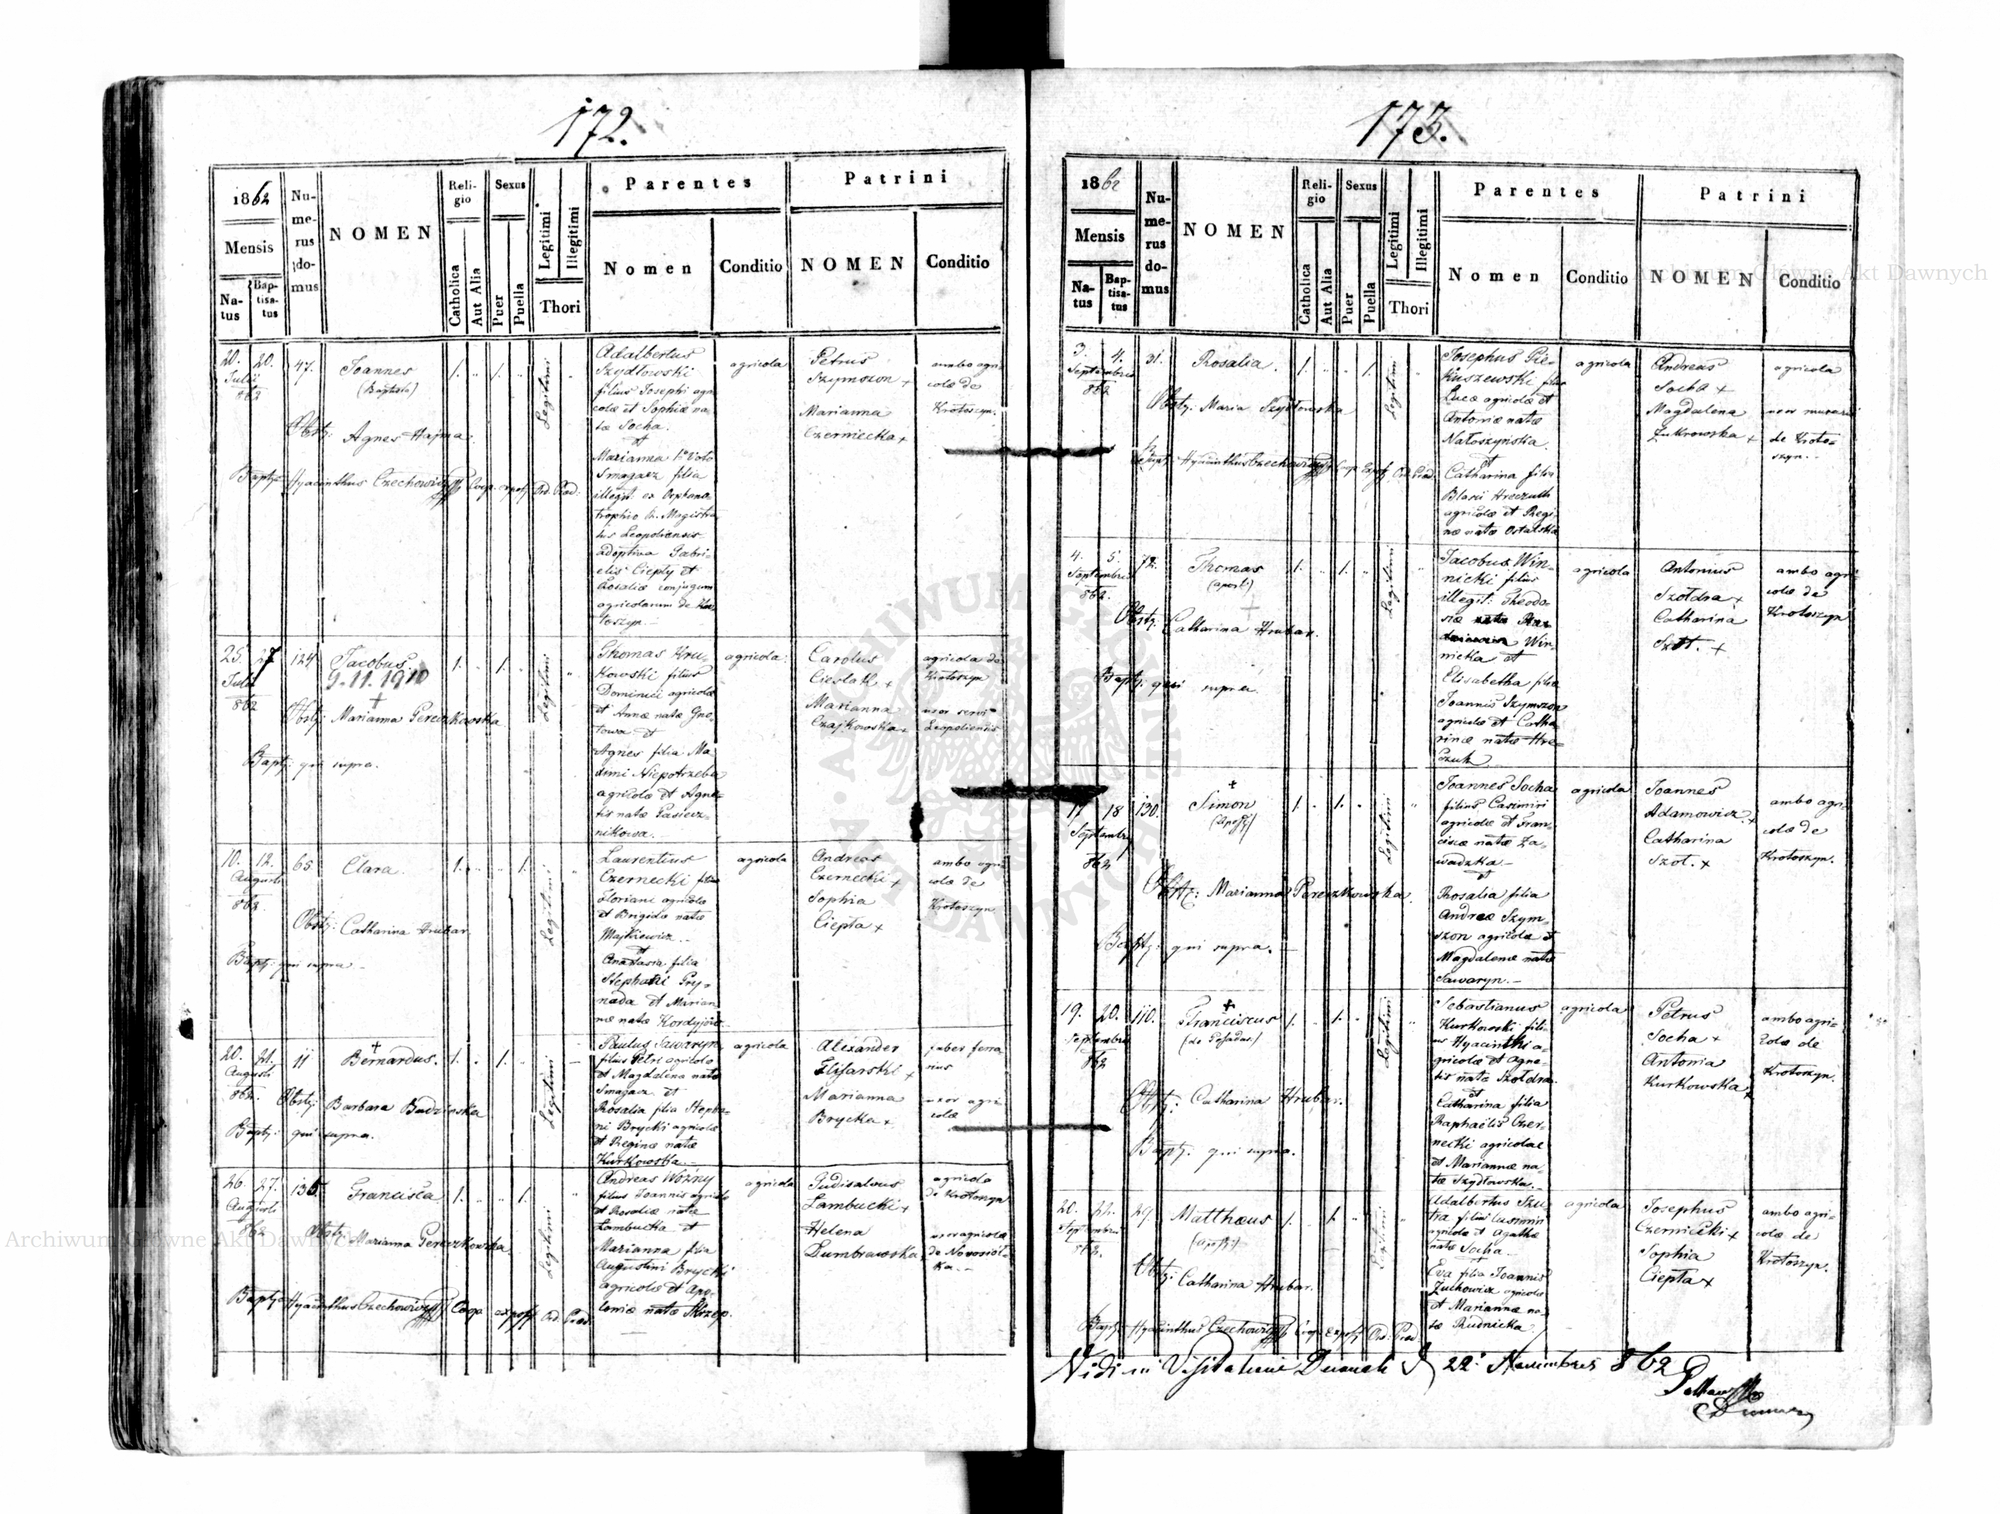 172.
1862
Mensis
Na-
tus
Bap-
tisa-
tus
Nu-
me-
rus
do-
mus
NOMEN
Reli-
gio
Catholica
Aut Alia
Sexus
Puer
Puella
Legitimi
Illegitimi
Thori
Parentes
Nomen
Conditio
Patrini
NOMEN
Conditio
20. 20.
Julii
862
47.
Joannes
(Baptista)
Obstz: Agnes Hajma
Bapt: Hyacinthus Czechowicz Coop. expos. Ord. Praed.
Legitimi
Adalbertus
Szydłowski
filius Josephi agri-
colae et Sophiae na-
tae Socha.
et
Marianna 1o Voto
Smagacz filia
illegit. ex Orphano
trophio
Leopoliensis
adoptiva Gabri-
elis Ciepły et
Rosaliae conjugum
agricolarum de Kro-
toszyn.
agricola
Petrus
Szymszon +
Marianna
Czernecka +
ambo agri
colae de
Krotoszyn.
25. 27
Julii
862
124
Jacobus.
9.11.1910
+
Obstz: Marianna Gereczkowska
Bapt: qui supra.
Legitimi
Thomas Kru-
kowski filius
Dominici agricolae
et Annae natae Gno-
towa et
Agnes filia Ma-
Niepotrzeba
agricolae et Agne-
tis natae Pasiecz-
nikowa.
agricola
Carolus
Cieslak +
Marianna
Czajkowska +
agricola de
Krotoszyn
uxor servi
Leopoliensis
10. 12.
Augusti
862
65
Clara.
Obstz: Catharina Hrubar.
Bapt: qui supra
Legitimi
Laurentius
Czernecki filius
Floriani agricolae
et Brigidae natae
Majkiewicz.
et
Anastasia filia
Stephani Gry-
nada et Marian-
nae natae
agricola
Andreas
Czernecki +
Sophia
Ciepła +
ambo agri
colae de
Krotoszyn
20. 21.
Augusti
862
11
+
Bernardus.
Obstz: Barbara Budzinska
Bapt: qui supra.
Legitimi
Paulus Sawaryn
filius Petri agricolae
et Magdalena nata
Smagacz et
Rosalia filia Stepha-
ni Brycki agricolae
et Reginae natae
Kurkowska.
agricola
Alexander
Elisarski +
Marianna
Brycka +
faber ferra
rius
uxor agri-
colae
26. 27.
Augusti
862
135
Francisca.
Obstz: Marianna Gereczkowska
Bapt: Hyacinthus Czechowicz Coop expos Ord. Praed.
Legitimi
Andreas Woźny
filius Joannis agricolae
et Rosaliae natae
Łambucka et
Marianna filia
Augustini Brycki
agricolae et Apo-
loniae natae Skrzep.
agricola
Ladislaus
Łambucki +
Helena
Dumbrowska
agricola
de Krotoszyn
uxor agricolae
de Nowosiol-
ka.
173.
1862
Mensis
Na-
tus
Bap-
tisa-
tus
Nu-
me-
rus
do-
mus
NOMEN
Reli-
gio
Catholica
Aut Alia
Sexus
Puer
Puella
Legitimi
Illegitimi
Thori
Parentes
Nomen
Conditio
Patrini
NOMEN
Conditio
3. 4.
Septembris
862
31.
Rosalia.
Obstz: Maria Szydłowska
Bapt: Hyacinthus Czechowicz Coop. Expos. Ord. Praed.
Legitimi
Josephus Pie-
kuszewski filius
Lucae agricolae et
Antoniae natae
Natoszyńska.
et
Catharina filia
Blasii Hreczuch
agricolae et Regi-
nae natae Ostalska
agricola
Andreas
Socha +
Magdalena
Żukrowska +
agricola
uxor murarii
de Kroto-
szyn.
4. 5.
Septembris
862.
72.
Thomas
(apost:)
+
Obstz: Catharina Hrubar.
Bapt: qui supra
Legitimi
Jacobus Win-
nicki filius
illegit: Theodo-
siae
Win-
nicka et
Elisabetha filia
Joannis Szymszon
agricolae et Catha-
rinae natae Hre-
czuk
agricola
Antonius
Szołdra +
Catharina
Szot. +
ambo agri-
colae de
Krotoszyn
17 18
Septembris
862
130.
+
Simon
(Apost)
Obstz: Marianna Gereczkowska
Bapt: qui supra.
Legitimi
Joannes Socha
filius Casimiri
agricolae et Fran-
ciscae natae Za-
wadzka
et
Rosalia filia
Andreae Szym
szon agricolae et
Magdalenae natae
Sawaryn.
agricola
Joannes
Adamowicz. +
Catharina
Szot. +
ambo agri-
colae de
Krotoszyn.
19. 20.
Septembris
862
110.
+
Franciscus
(de Posadas)
Obstz: Catharina Hrubar.
Bapt: qui supra.
Legitimi
Sebastianus
Kurkowski fili-
us Hyacinthi a-
gricolae et Agne-
tis natae Szołdra.
et
Catharina filia
Raphaelis Czer-
necki agricolae
et Mariannae na-
tae Szydłowska.
agricola
Petrus
Socha +
Antonia
Kurkowska +
ambo agri-
colae de
Krotoszyn.
20. 21.
Septembris
862.
29.
Matthaeus
(apost:)
Obstz: Catharina Hrubar.
Bapt: Hyacinthus Czechowicz Coop Expos Ord: Praed.
Legitimi
Adalbertus Szu-
tra filius Casimiri
agricolae et Agathae
natae Socha
et
Eva filia Joannis
Żuchowicz agricolae
et Mariannae na-
tae Rudnicka.
agricola
Josephus
Czernicki +
Sophia
Ciepła +
ambo agri-
colae de
Krotoszyn.
Vidi in Visitatione Decanali d 22: Novembris 862
ARCHIWUM GŁÓWNE AKT DAWNYCH
Archiwum Główne Akt Dawnych
Archiwum Główne Akt Dawnych